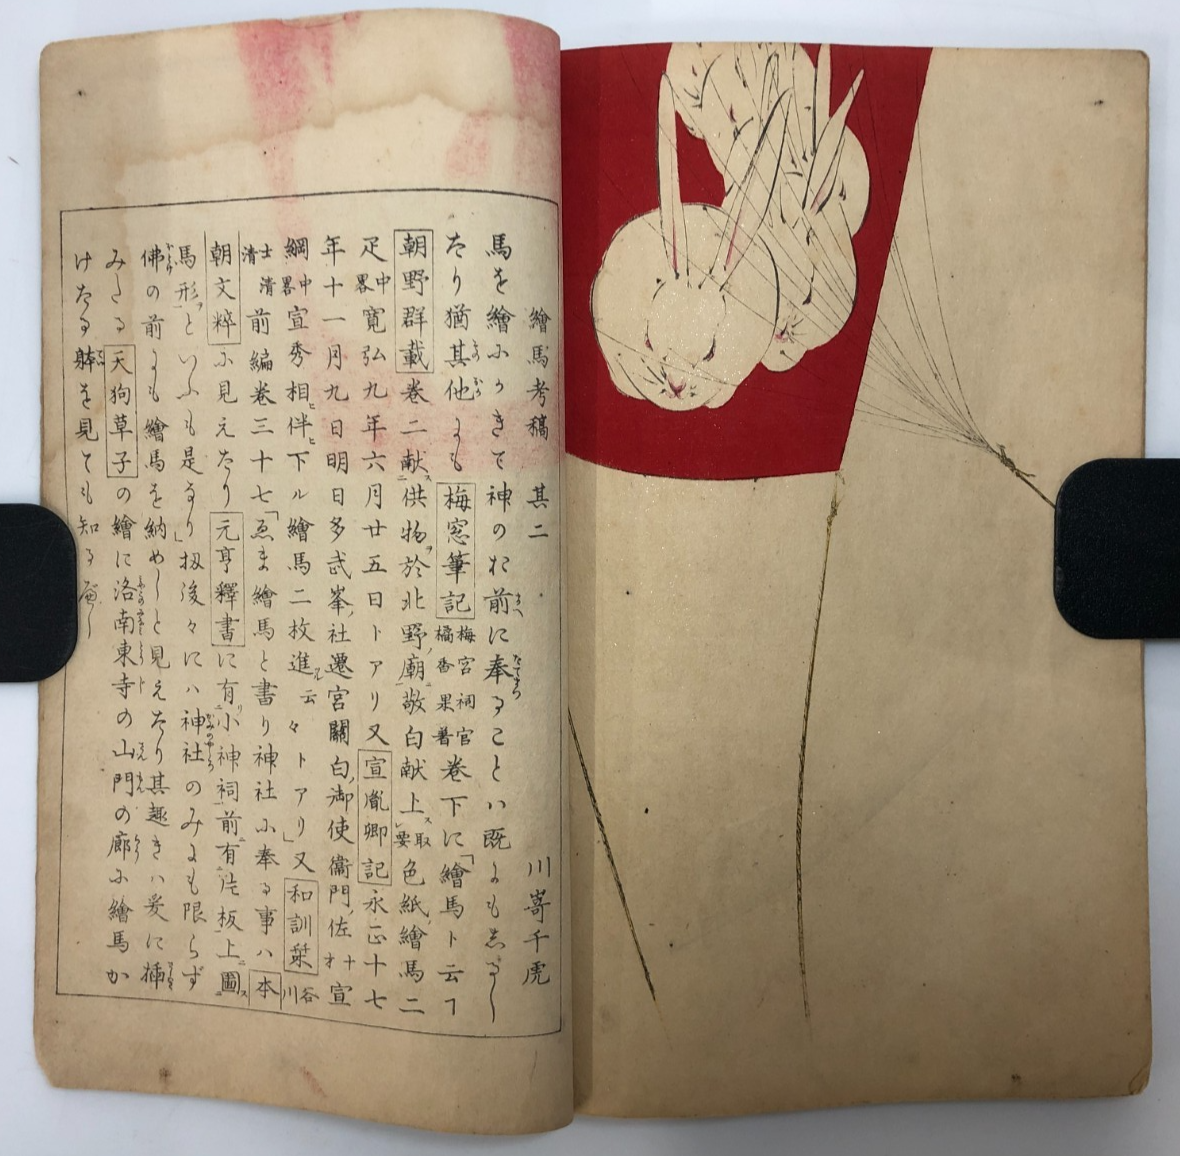 繪馬考稿 其二 川嵜千虎
馬を繪ふかきて神のお前に奉ることハ既にもしるし
たり猶其他にも梅窓筆記梅宮祠官橘香果著卷下に「繪馬ト云フ
朝野群載卷二献供物於北野廟敬白献上取要色紙繪馬二
疋中畧寛弘九年六月廿五日トアリ又宣胤卿記永正十七
年十一月九日明日多武峯社遷宮關白御使衞門佐宣
綱中畧宣秀相伴下ル繪馬二枚進云々トアリ」又和訓栞谷川
士清前編卷三十七「ゑま繪馬と書り神社ふ奉る事ハ本
朝文粹ふ見えたり元亨釋書に有小神祠前有片板上圖
馬形といふも是なり」扨後々にハ神社のみにも限らず
佛の前にも繪馬を納めしと見えたり其趣きハ爰に挿
みたる天狗草子の繪に洛南東寺の山門の廊ふ繪馬か
けたる躰を見ても知るべし